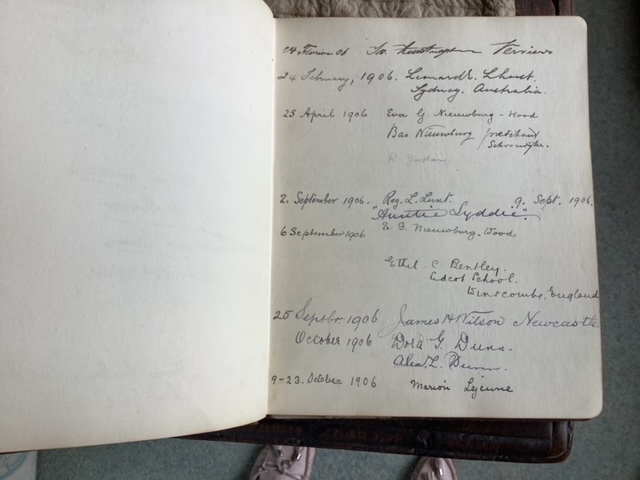 24 February, 1906. Leonard E. Lhoest.
Sydney. Australia.
25 April 1906 Eva G. Nieuwburg-Wood
Bas Nieuwburg
2. September 1906. Reg. L. Lunt. 9. Sept. 1906.
"Auntie Lyddie".
6 September 1906 E. G. Nieuwburg-Wood
Ethel C Bentley.
Sidcot School.
Winscombe, England
25 Septbr. 1906 James H Wilson Newcastle
October 1906 Dora G. Dunn.
Alex. L. Dunn.
9-23. October 1906 Marion Lejeune